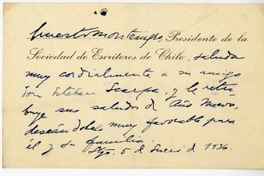 Ernesto Montenegro, Presidente de la
Sociedad de Escritores de Chile, saluda
muy cordialmente a su amigo
don Esteban Scarpa, y le retri-
buye sus saludos de Año Nuevo,
deseándoles muy favorable para
él y su familia.
Stgo. 5 de Enero de 1936.